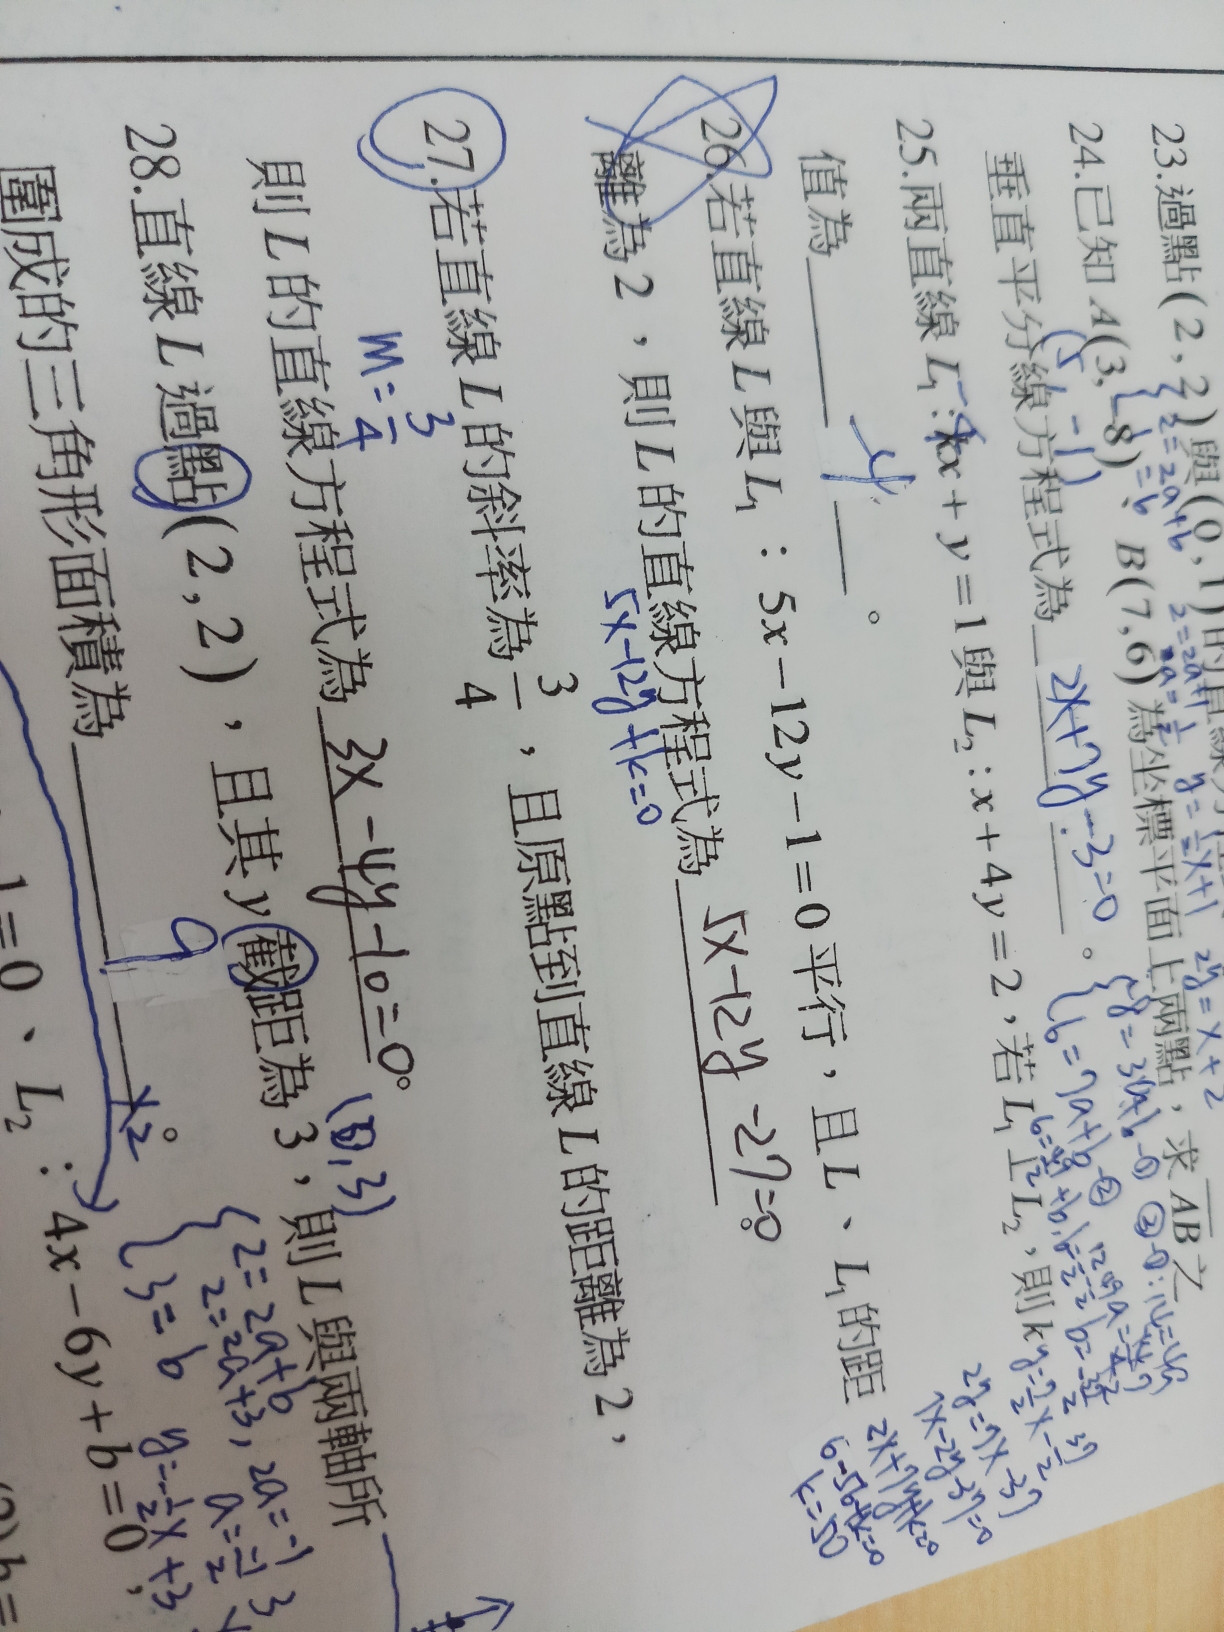 23.過點(2,2)與(0,1)的直線
{2=2a+b
1=b
2=2a+1
2a=1
y=½x+1
2y=x+2
24.已知A(3,-8)、B(7,6)為坐標平面上兩點,求AB之
(5,-1)
垂直平分線方程式為 2x+7y-3=0 。
{-8=3a+b-①
6=7a+b-②
25.兩直線L₁:kx+y=1與L₂:x+4y=2,若L₁⊥L₂,則k
值為 -4 。
2y=7x-37
7x-2y-37=0
2x+7y+k=0
26.若直線L與L₁:5x-12y-1=0平行,且L、L₁的距
離為2,則L的直線方程式為 5x-12y-27=0。
5x-12y+k=0
27.若直線L的斜率為3/4,且原點到直線L的距離為2,
m=3/4
則L的直線方程式為 3x-4y-10=0。
(0,3)
28.直線L過點(2,2),且其y截距為3,則L與兩軸所
{2=2a+b
3=b
2=2a+3, 2a=-1
a=-1/2
y=-½x+3
圍成的三角形面積為 9 。
1=0、L₂:4x-6y+b=0,